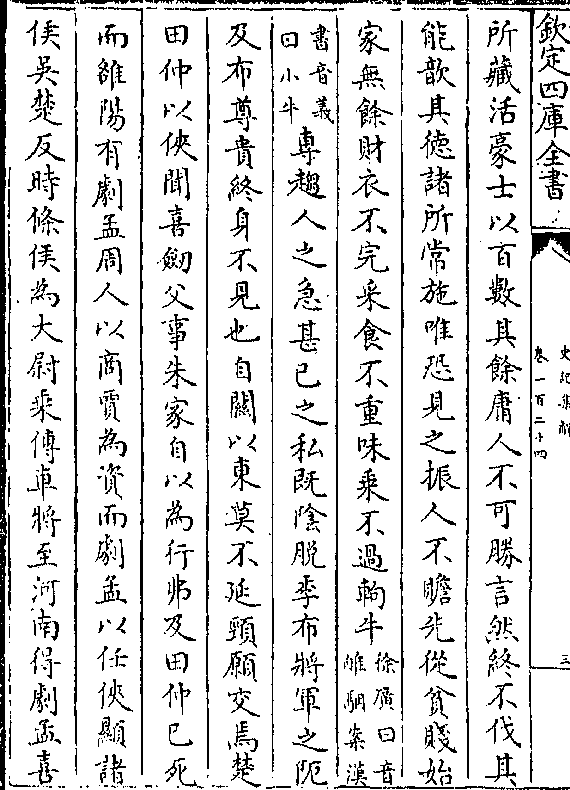 欽定四庫全書
史記集解
卷一百二十四
三
所藏活豪士以百數其餘庸人不可勝言然終不伐其
能歆其德諸所常施唯恐見之振人不贍先從貧賤始
家無餘財衣不完采食不重味乘不過軥牛徐廣曰音雊駰案漢
書音義曰小牛專趨人之急甚已之私既陰脫季布將軍之阨
及布尊貴終身不見也自關以東莫不延頸願交焉楚
田仲以俠聞喜劒父事朱家自以為行弗及田仲已死
而雒陽有劇孟周人以商賈為資而劇孟以任俠顯諸
侯吳楚反時條侯為大尉乘傳車將至河南得劇孟喜